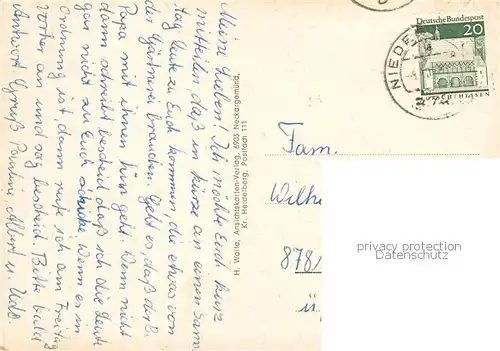 Meine Lieben! Ich möchte Euch kurz
mitteilen, daß in kürze an einem Sams
tag Leute zu Euch kommen, die etwas von
der Gärtnerei brauchen. Geht es, daß der B.
Papa mit ihnen hin geht. Wenn nicht
dann schreibt bescheid daß ich die Leute
gar nicht zu Euch schicke. Wenn es in
Ordnung ist, dann rufe ich am Freitag
vorher an und sag bescheid. Bitte bald
Antwort Gruß Pauline, Albert u. Udo.
H. Walla, Ansichtskarten-Verlag, 6903 Neckargemünd,
Kr. Heidelberg, Postfach 111
Deutsche Bundespost
20
LORSCH/HESSEN
NIEDE
Fam.
Wilhe
878
ü
privacy protection
VEROSEM